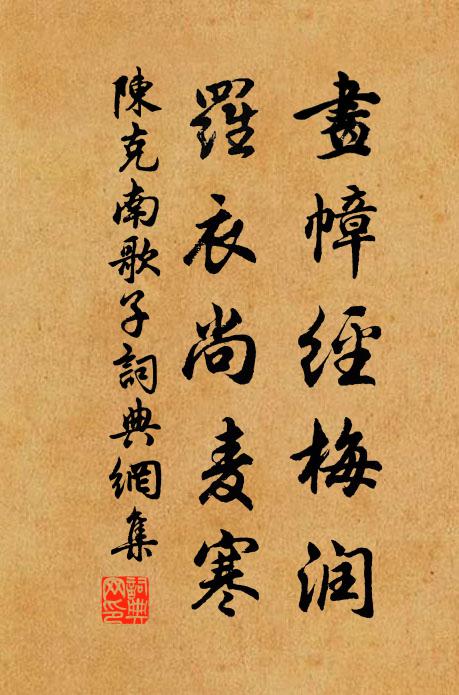 畫幛經梅润
羅衣尚麦寒
陳克南歌子詞典網集
詞典网印